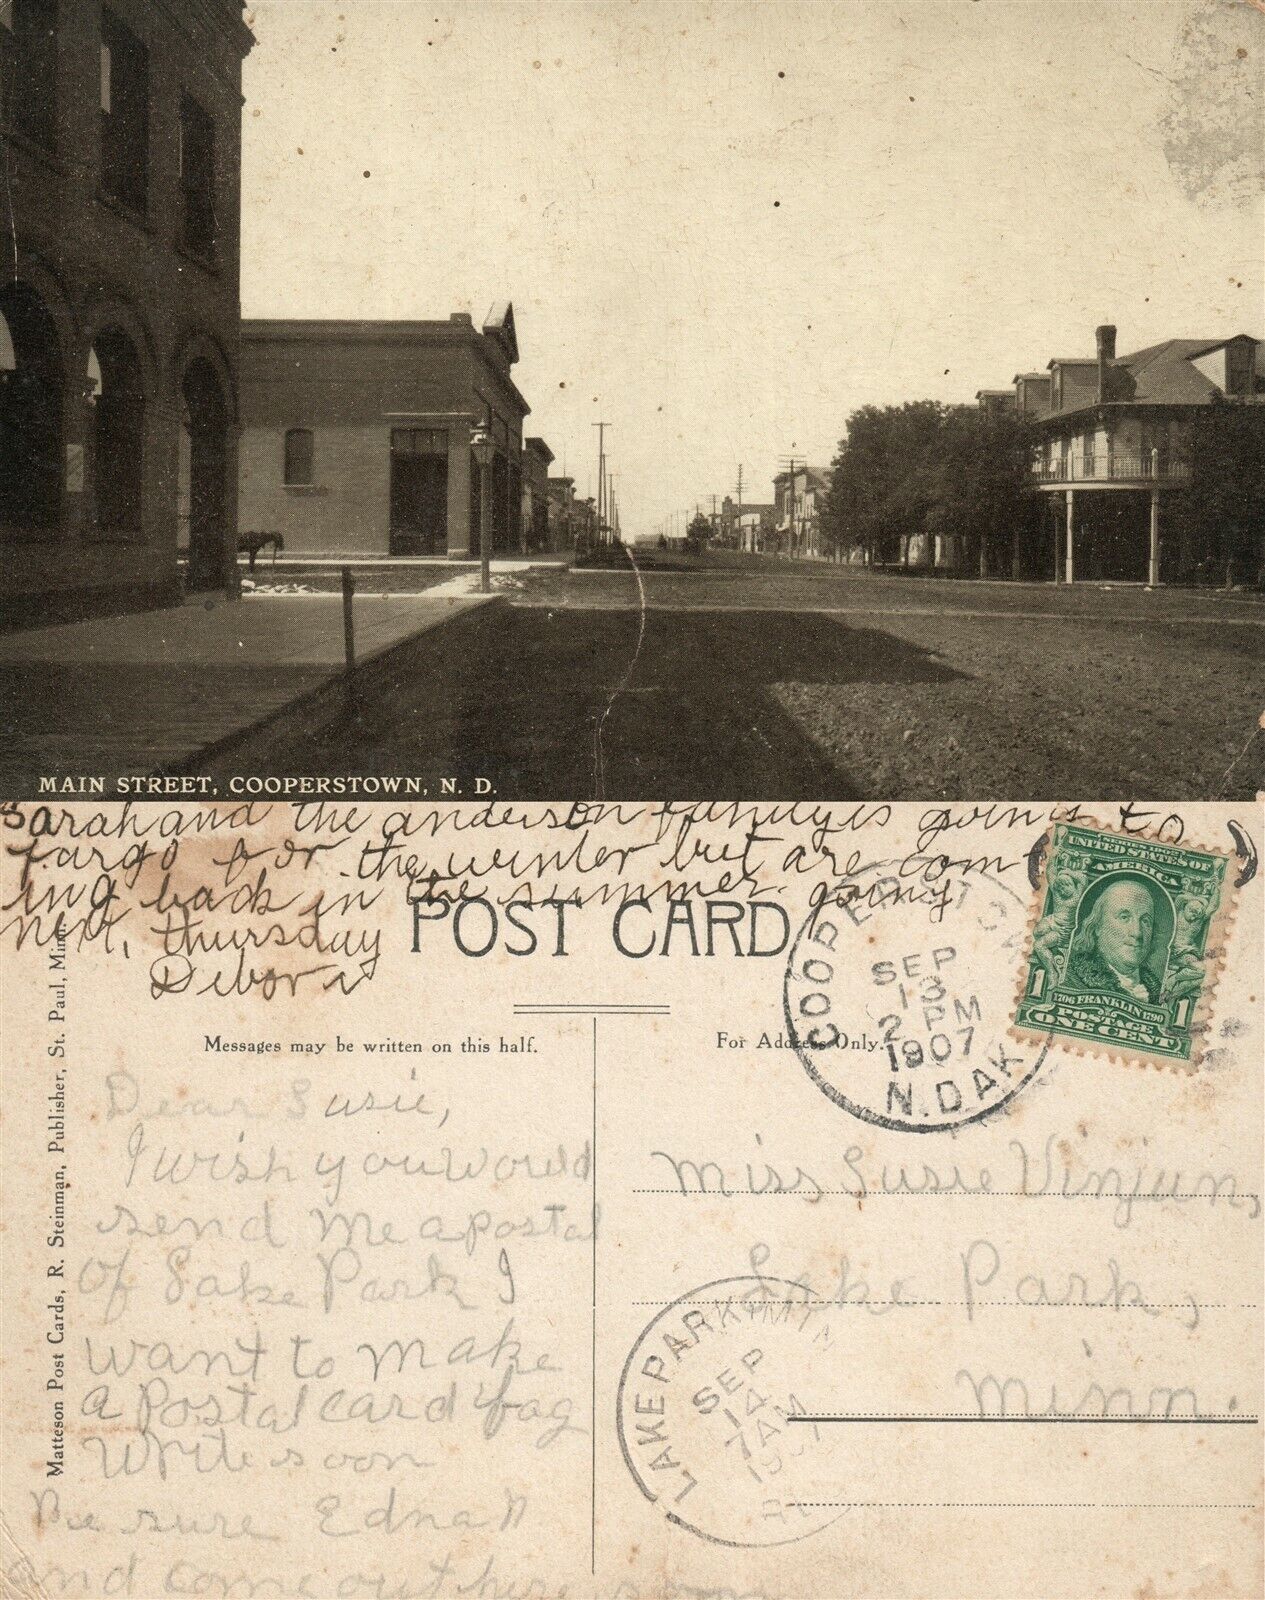 MAIN STREET, COOPERSTOWN, N. D.
Sarah and the anderson family is going to
fargo for the winter but are com
ing back in the summer. going
next, thursday
POST CARD
Messages may be written on this half.
For Address Only.
Matteson Post Cards, R. Steinman, Publisher, St. Paul, Minn.
COOPERSTOWN
SEP
13
2 PM
1907
N.DAK
UNITED STATES OF
AMERICA
1 1
1706 FRANKLIN 1790
POSTAGE
ONE CENT
Dear Susie,
I wish you would
send me a postal
of Lake Park I
want to make
a Postal card bag
write soon
Be sure Edna N
and come out here soon
Miss Susie Vinjun,
Lake Park,
Minn.
LAKE PARK MINN
SEP
14
7 AM
1907